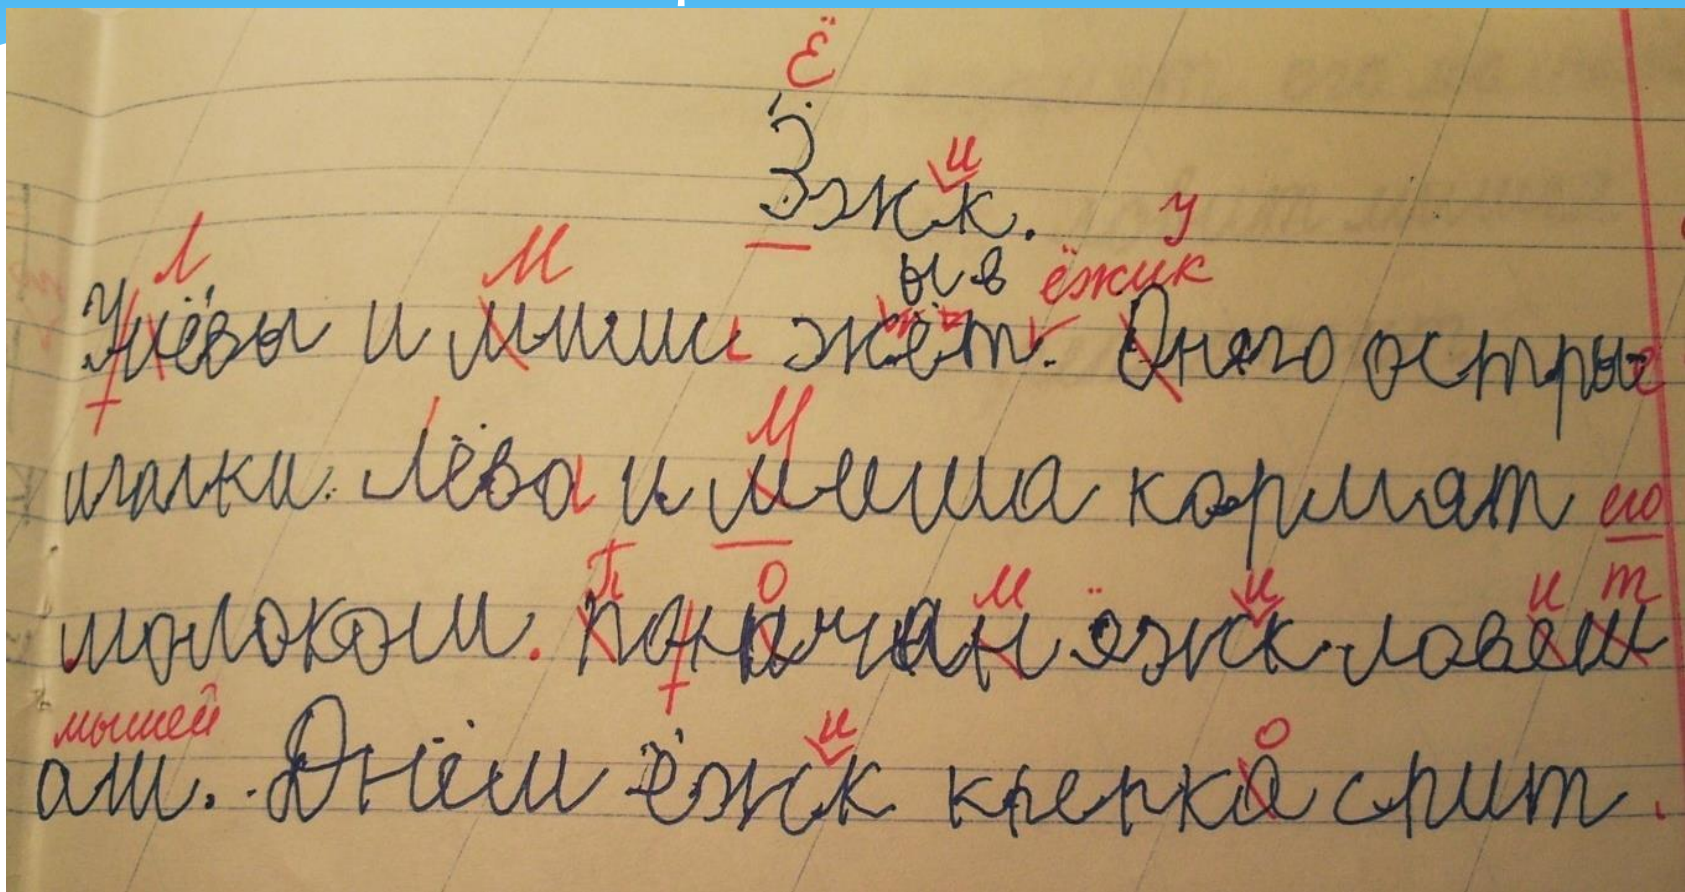 Ё
Ёжк.
и
Л М ы в ёжик У
Улёвы и миши жёт. Онего острые
иголки. Лёва и миша кормят его
М
молоком. поначан ёжк ловеш
П о м и и т
мышей
аш. Днём ёжк крепка спит.
и о